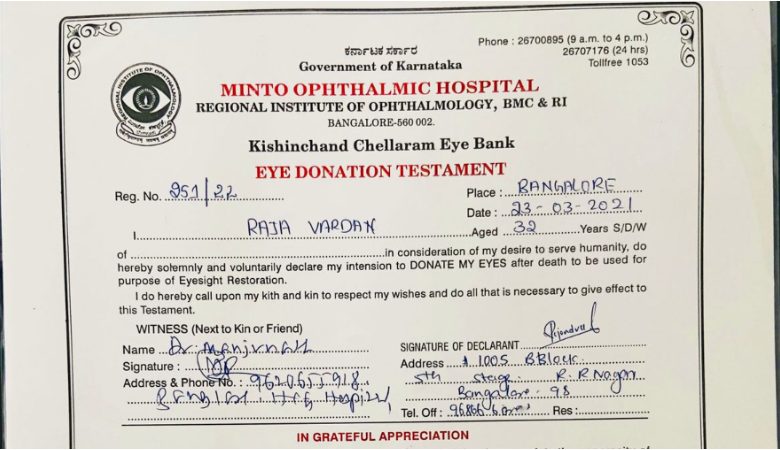 ಕರ್ನಾಟಕ ಸರ್ಕಾರ
Phone : 26700895 (9 a.m. to 4 p.m.)
26707176 (24 hrs)
Tollfree 1053
Government of Karnataka
MINTO OPHTHALMIC HOSPITAL
REGIONAL INSTITUTE OF OPHTHALMOLOGY, BMC & RI
BANGALORE-560 002.
Kishinchand Chellaram Eye Bank
EYE DONATION TESTAMENT
Reg. No. 251/22
Place : BANGALORE
Date : 23-03-2021
I RAJA VARDAN Aged 32 Years S/D/W
of in consideration of my desire to serve humanity, do
hereby solemnly and voluntarily declare my intension to DONATE MY EYES after death to be used for
purpose of Eyesight Restoration.
I do hereby call upon my kith and kin to respect my wishes and do all that is necessary to give effect to
this Testament.
WITNESS (Next to Kin or Friend)
Name Dr.
Signature :
Address & Phone No. : 9620655918
Hospital
SIGNATURE OF DECLARANT
Address # 1005 B Block
5th Stage R. R Nagar
Bangalore - 98
Tel. Off : Res :
IN GRATEFUL APPRECIATION